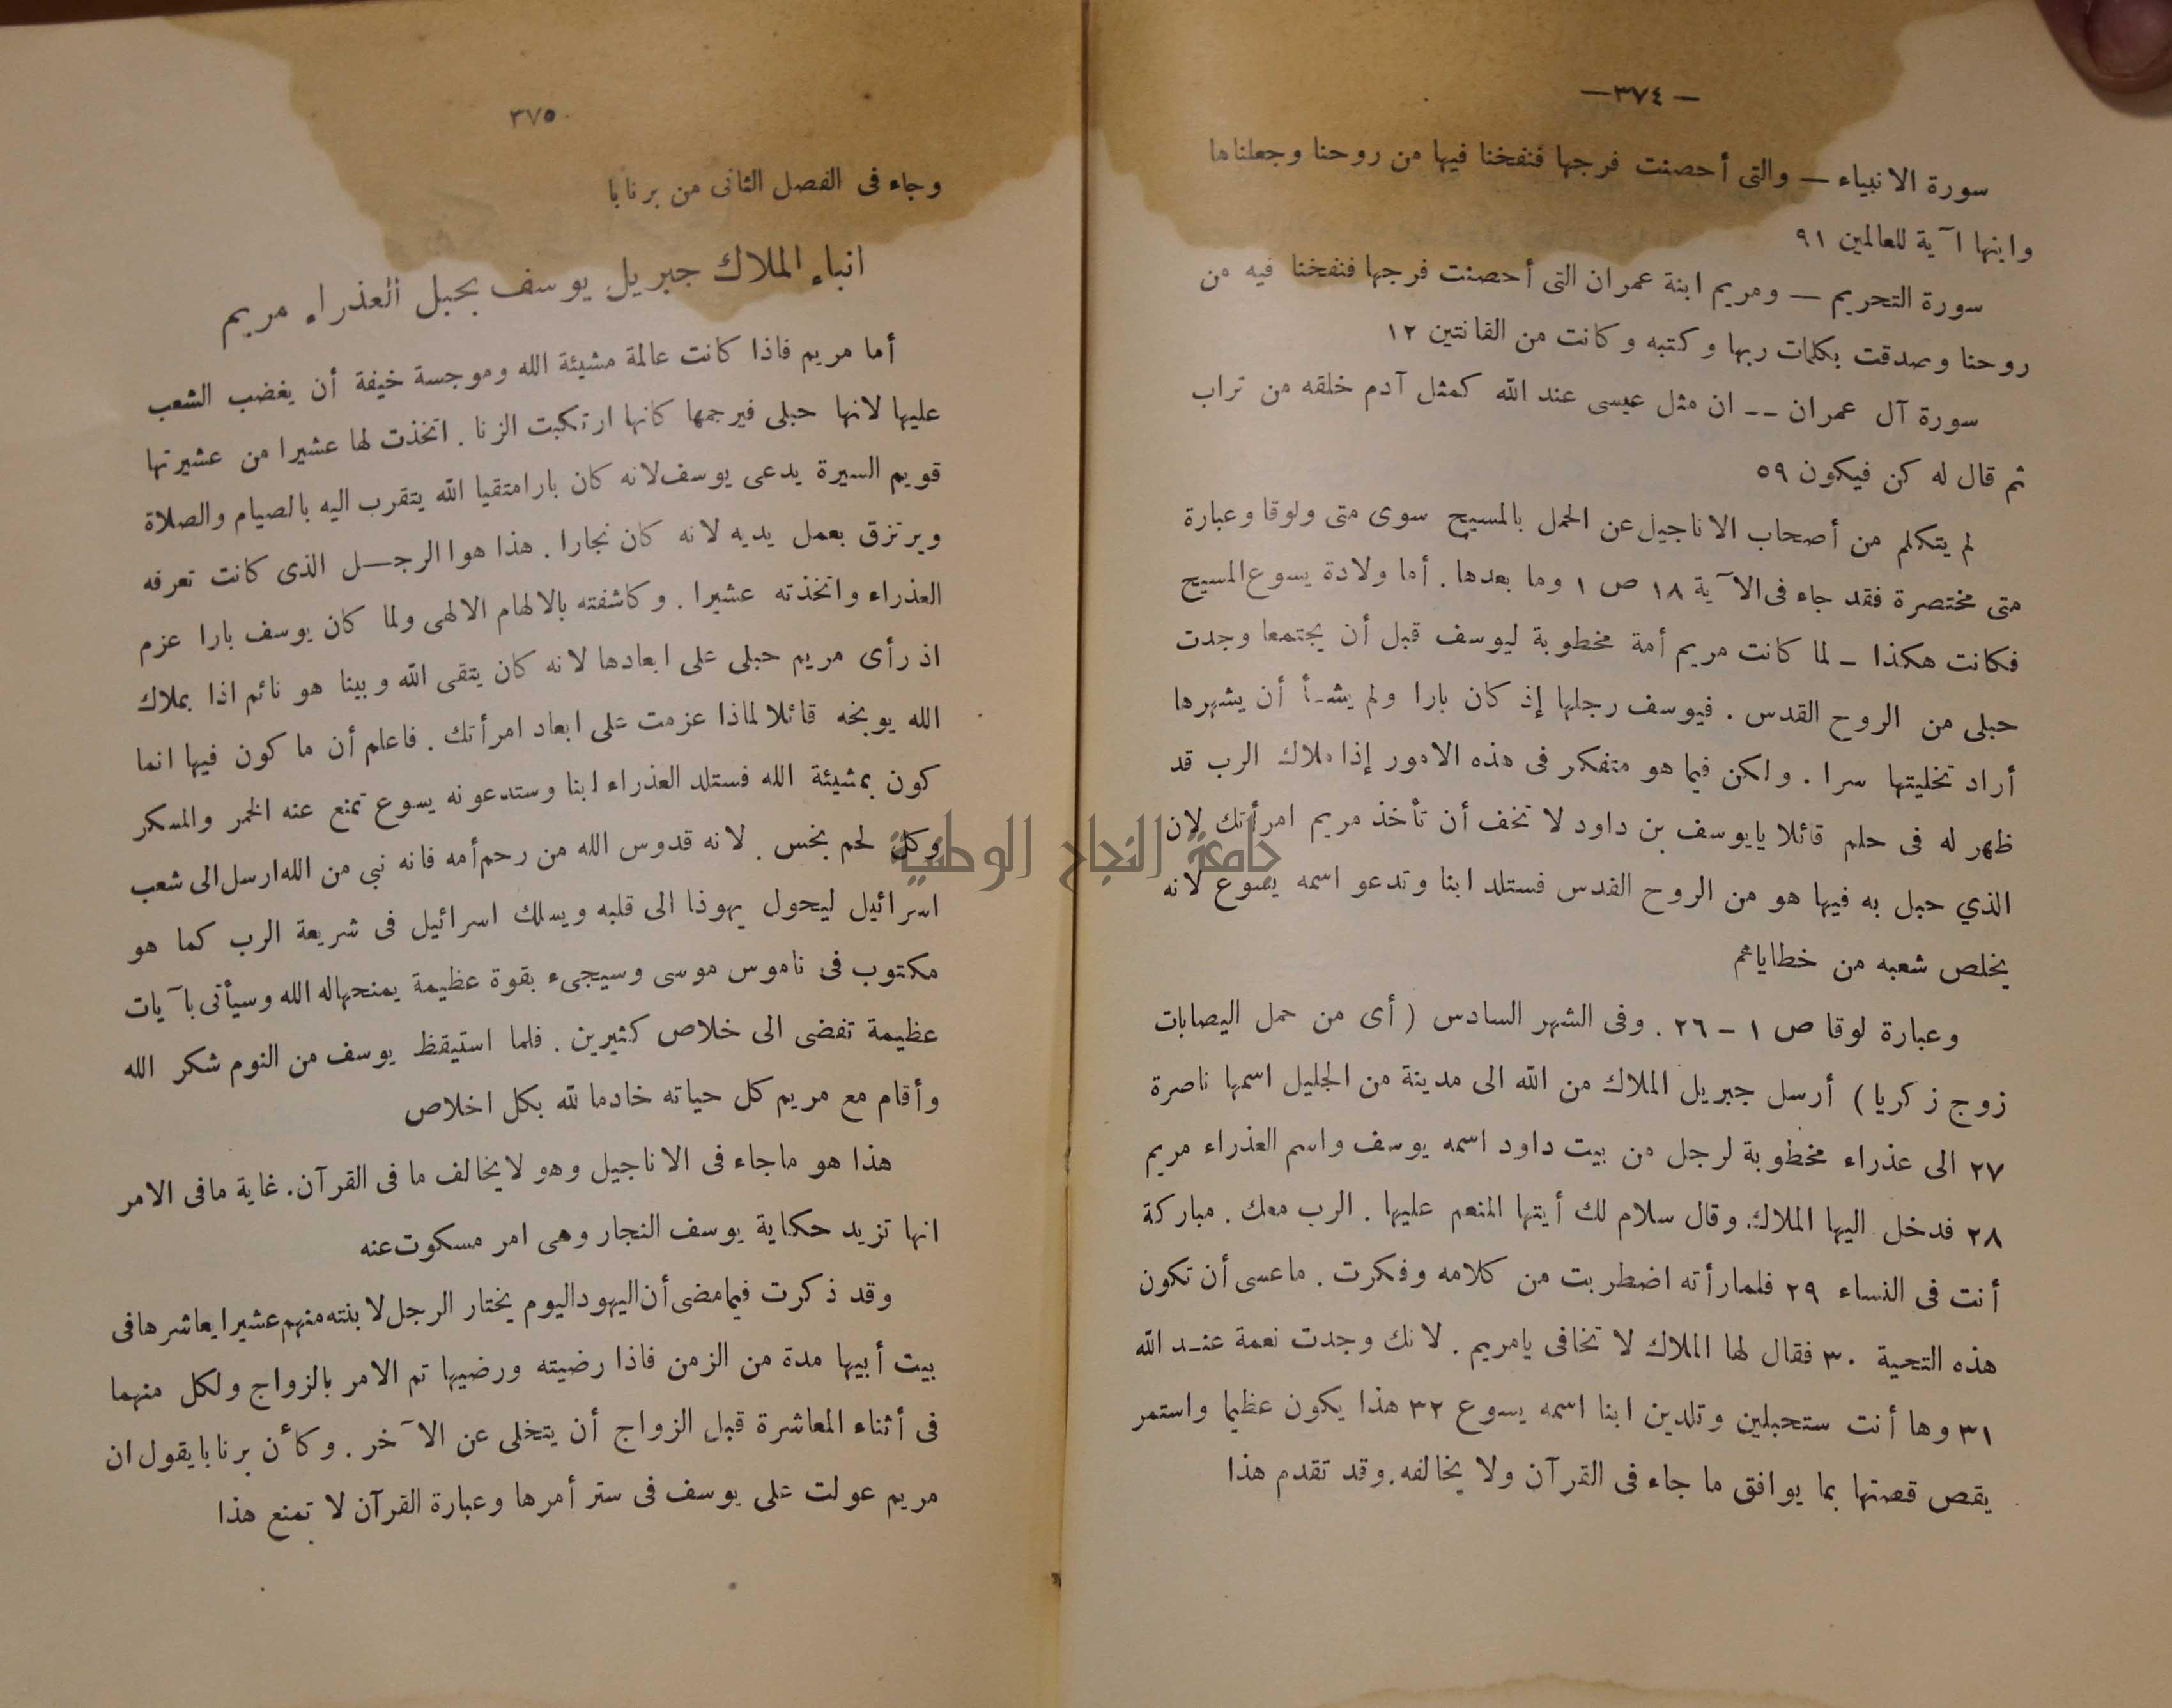 — ٣٧٤ —
سورة الانبياء — والتى أحصنت فرجها فنفخنا فيها من روحنا وجعلناها
وابنها آية للعالمين ٩١
سورة التحريم — ومريم ابنة عمران التى أحصنت فرجها فنفخنا فيه من
روحنا وصدقت بكلمات ربها وكتبه وكانت من القانتين ١٢
سورة آل عمران -- ان مثل عيسى عند الله كمثل آدم خلقه من تراب
ثم قال له كن فيكون ٥٩
لم يتكلم من أصحاب الاناجيل عن الحمل بالمسيح سوى متى ولوقا وعبارة
متى مختصرة فقد جاء فى الآية ١٨ ص ١ وما بعدها. أما ولادة يسوع المسيح
فكانت هكذا - لما كانت مريم أمة مخطوبة ليوسف قبل أن يجتمعا وجدت
حبلى من الروح القدس . فيوسف رجلها إذ كان بارا ولم يشأ أن يشهرها
أراد تخليتها سرا . ولكن فيما هو متفكر فى هذه الامور إذا ملاك الرب قد
ظهر له فى حلم قائلا يايوسف بن داود لا تخف أن تأخذ مريم امرأتك لان
الذي حبل به فيها هو من الروح القدس فستلد ابنا وتدعو اسمه يسوع لانه
يخلص شعبه من خطاياهم
وعبارة لوقا ص ١ - ٢٦ . وفى الشهر السادس ( أى من حمل اليصابات
زوج زكريا ) أرسل جبريل الملاك من الله الى مدينة من الجليل اسمها ناصرة
٢٧ الى عذراء مخطوبة لرجل من بيت داود اسمه يوسف واسم العذراء مريم
٢٨ فدخل اليها الملاك وقال سلام لك أيتها المنعم عليها . الرب معك . مباركة
أنت فى النساء ٢٩ فلما رأته اضطربت من كلامه وفكرت . ما عسى أن تكون
هذه التحية ٣٠ فقال لها الملاك لا تخافى يامريم . لانك وجدت نعمة عند الله
٣١ وها أنت ستحبلين وتلدين ابنا اسمه يسوع ٣٢ هذا يكون عظيما واستمر
يقص قصتها بما يوافق ما جاء فى القرآن ولا يخالفه . وقد تقدم هذا
٣٧٥
وجاء فى الفصل الثانى من برنابا
انباء الملاك جبريل يوسف بحبل العذراء مريم
أما مريم فاذا كانت عالمة مشيئة الله وموجسة خيفة أن يغضب الشعب
عليها لانها حبلى فيرجمها كانها ارتكبت الزنا . اتخذت لها عشيرا من عشيرتها
قويم السيرة يدعى يوسف لانه كان بارا متقيا الله يتقرب اليه بالصيام والصلاة
ويرتزق بعمل يديه لانه كان نجارا . هذا هو الرجل الذى كانت تعرفه
العذراء واتخذته عشيرا . وكاشفته بالالهام الالهى ولما كان يوسف بارا عزم
اذ رأى مريم حبلى على ابعادها لانه كان يتقى الله وبينا هو نائم اذا بملاك
الله يوبخه قائلا لماذا عزمت على ابعاد امرأتك . فاعلم أن ما كون فيها انما
كون بمشيئة الله فستلد العذراء ابنا وستدعونه يسوع تمنع عنه الخمر والمسكر
وكل لحم بخس . لانه قدوس الله من رحم أمه فانه نبى من الله ارسل الى شعب
اسرائيل ليحول يهوذا الى قلبه ويسلك اسرائيل فى شريعة الرب كما هو
مكتوب فى ناموس موسى وسيجىء بقوة عظيمة يمنحهاله الله وسيأتى بآيات
عظيمة تفضى الى خلاص كثيرين . فلما استيقظ يوسف من النوم شكر الله
وأقام مع مريم كل حياته خادما لله بكل اخلاص
هذا هو ماجاء فى الاناجيل وهو لايخالف ما فى القرآن. غاية مافى الامر
انها تزيد حكاية يوسف النجار وهى امر مسكوت عنه
وقد ذكرت فيمامضى أن اليهود اليوم يختار الرجل لابنته منهم عشيرا يعاشرها فى
بيت أبيها مدة من الزمن فاذا رضيته ورضيها تم الامر بالزواج ولكل منهما
فى أثناء المعاشرة قبل الزواج أن يتخلى عن الآخر . وكأن برنابا يقول ان
مريم عولت على يوسف فى ستر أمرها وعبارة القرآن لا تمنع هذا
جامعة النجاح الوطنية